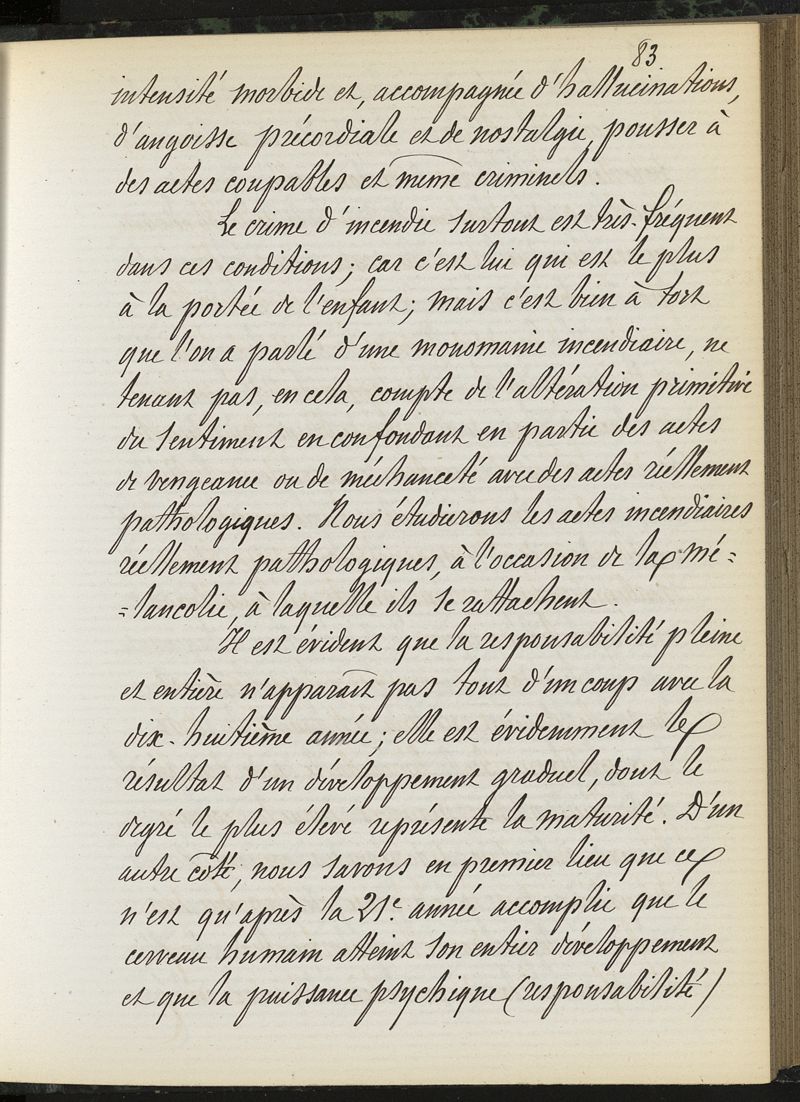 83
intensité morbide et, accompagnée d'hallucinations,
d'angoisse précordiale et de nostalgie, pousser à
des actes coupables et même criminels.
Le crime d'incendie surtout est très-fréquent
dans ces conditions; car c'est lui qui est le plus
à la portée de l'enfant; mais c'est bien à tort
que l'on a parlé d'une monomanie incendiaire, ne
tenant pas, en cela, compte de l'altération primitive
du sentiment en confondant en partie des actes
de vengeance ou de méchanceté avec des actes réellement
pathologiques. Nous étudierons les actes incendiaires
réellement pathologiques, à l'occasion de la mé=
=lancolie, à laquelle ils se rattachent.
Il est évident que la responsabilité pleine
et entière n'apparaît pas tout d'un coup avec la
dix-huitième année; elle est évidemment le
résultat d'un développement graduel, dont le
degré le plus élevé représente la maturité. D'un
autre côté, nous savons en premier lieu que ce
n'est qu'après la 21e année accomplie que le
cerveau humain atteint son entier développement
et que la puissance psychique (responsabilité)